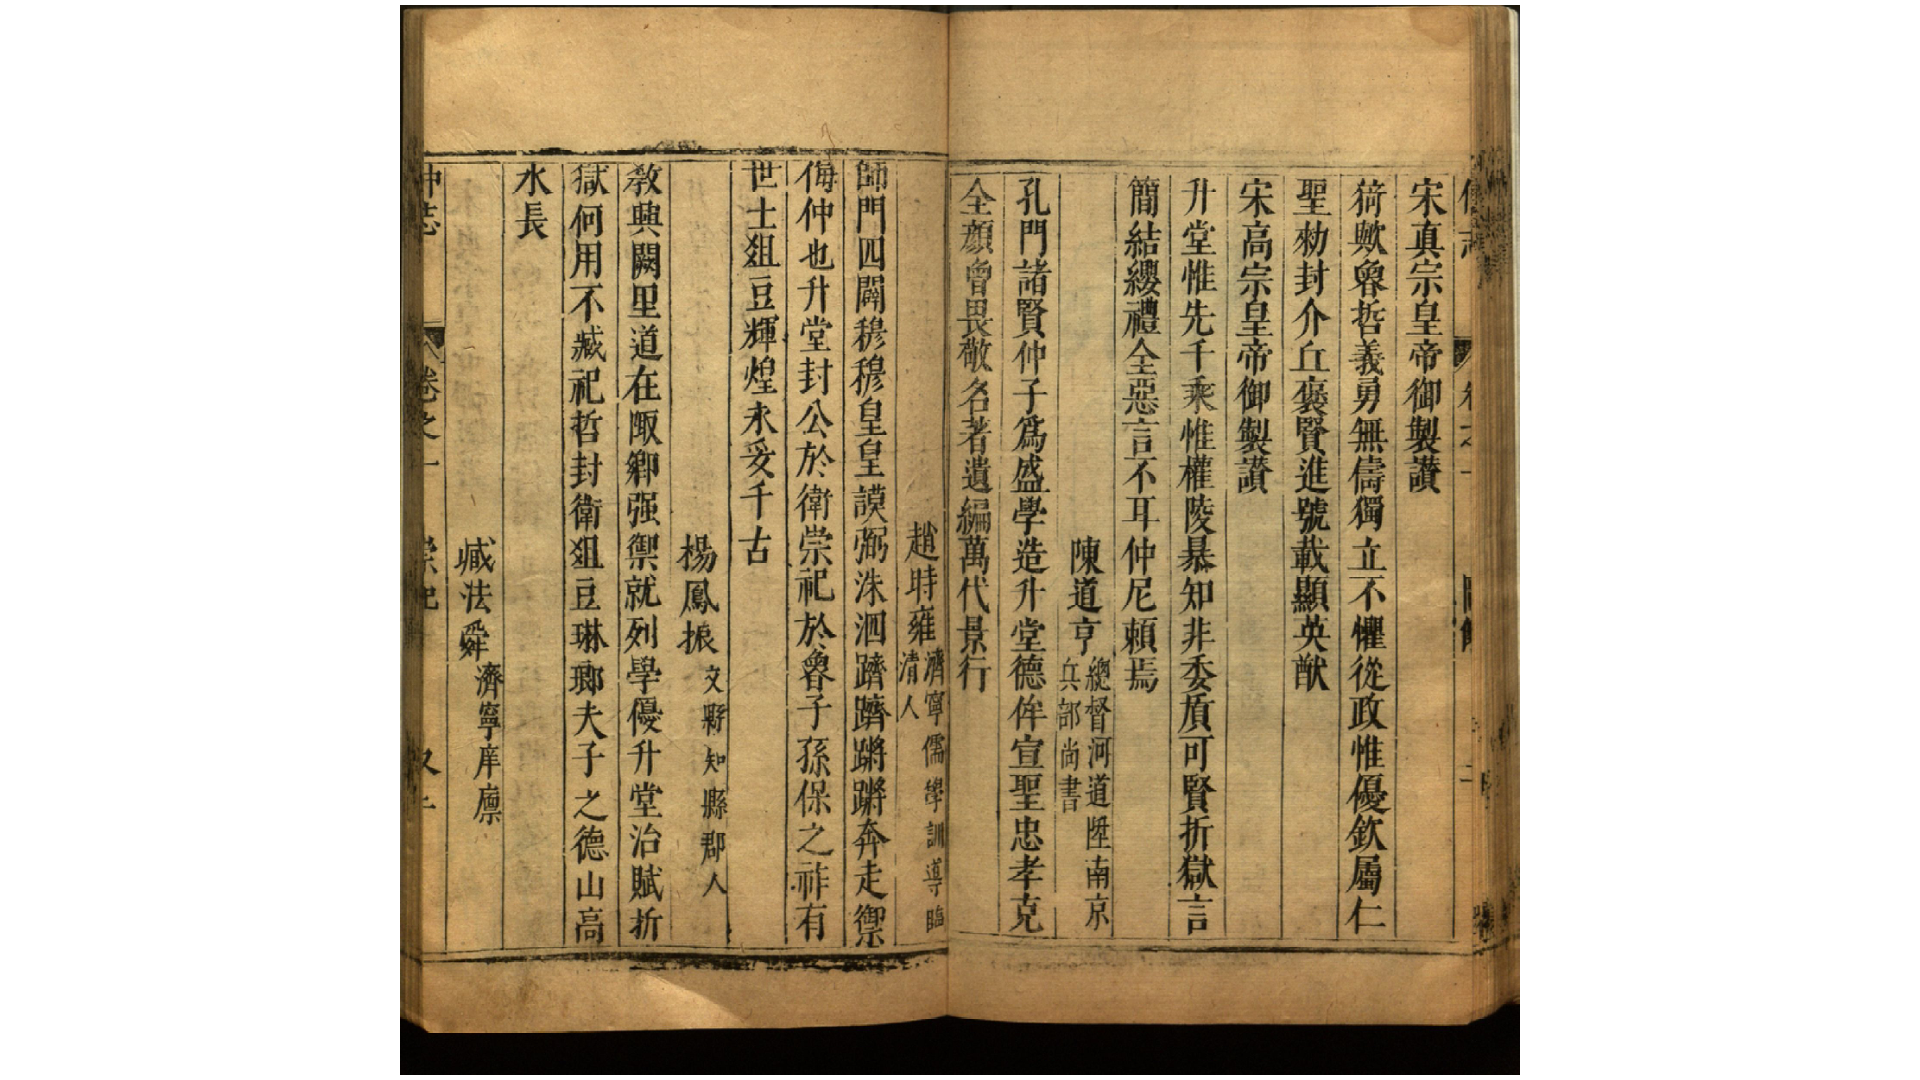 宋真宗皇帝御製讃
猗歟魯哲義勇無儔獨立不懼從政惟優欽屬仁
聖勑封介丘褒賢進號載顯英猷
宋高宗皇帝御製讃
升堂惟先千乘惟權陵暴知非委質可賢折獄言
簡結纓禮全惡言不耳仲尼賴焉
陳道亨 總督河道陞南京兵部尚書
孔門諸賢仲子爲盛學造升堂德侔宣聖忠孝克
全顏曾畏敬名著遺編萬代景行
趙時雍 濟寧儒學訓導臨清人
師門四闢穆穆皇皇謨弼洙泗蹌蹌蹡蹡奔走禦
侮仲也升堂封公於衛崇祀於魯子孫保之祚有
世士俎豆輝煌永妥千古
楊鳳振 文縣知縣郡人
教興闕里道在陬鄉强禦就列學優升堂治賦折
獄何用不臧祀哲封衛俎豆琳瑯夫子之德山高
水長
臧法舜 濟寧庠廪
仲志
卷之一
崇祀
又二